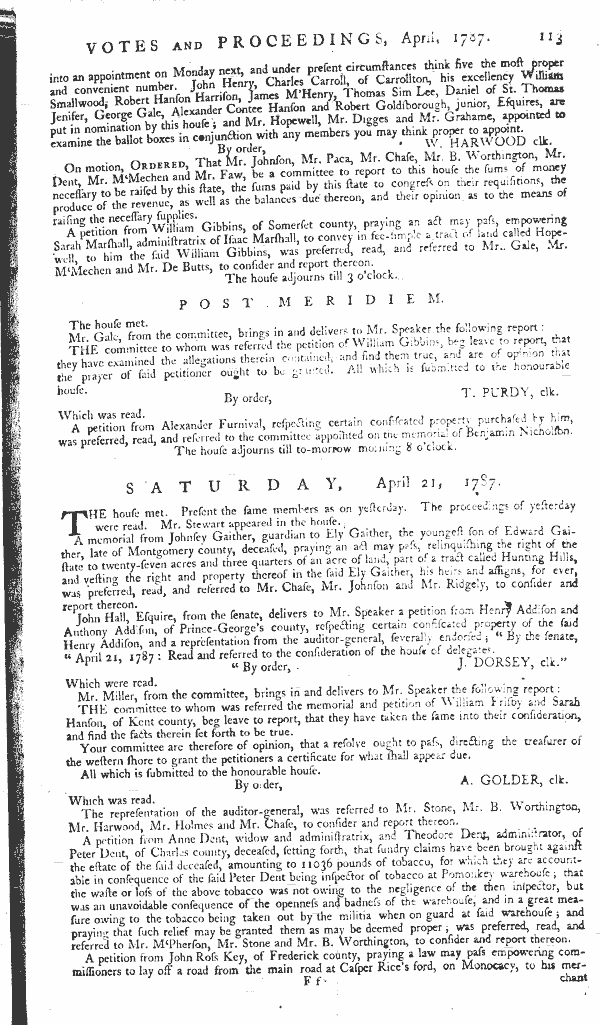 VOTES AND PROCEEDINGS, April, 1787. 113
into an appointment on Monday next, and under preſent circumſtances think five the moſt proper
and convenient number. John Henry, Charles Carroll, of Carrollton, his excellency William
Smallwood, Robert Hanſon Harriſon, James M'Henry, Thomas Sim Lee, Daniel of St. Thomas
Jenifer, George Gale, Alexander Contee Hanſon and Robert Goldſborough, junior, Eſquires, are
put in nomination by this houſe; and Mr. Hopewell, Mr. Digges and Mr. Grahame, appointed to
examine the ballot boxes in conjunction with any members you may think proper to appoint.
By order, W. HARWOOD clk.
On motion, ORDERED, That Mr. Johnſon, Mr. Paca, Mr. Chaſe, Mr. B. Worthington, Mr.
Dent, Mr. M'Mechen and Mr. Faw, be a committee to report to this houſe the ſums of money
neceſſary to be raiſed by this ſtate, the ſums paid by this ſtate to congreſs on their requiſitions, the
produce of the revenue, as well as the balances due thereon, and their opinion as to the means of
raiſing the neceſſary ſupplies.
A petition from William Gibbins, of Somerſet county, praying an act may paſs, empowering
Sarah Marſhall, adminiſtratrix of Iſaac Marſhall, to convey in fee-ſimple a tract of land called Hope-
well, to him the ſaid William Gibbins, was preferred, read, and referred to Mr. Gale, Mr.
M'Mechen and Mr. De Butts, to conſider and report thereon.
The houſe adjourns till 3 o'clock.
POST MERIDIEM.
The houſe met.
Mr. Gale, from the committee, brings in and delivers to Mr. Speaker the following report:
THE committee to whom was referred the petition of William Gibbins, beg leave to report, that
they have examined the allegations therein contained, and find them true, and are of opinion that
the prayer of ſaid petitioner ought to be granted. All which is ſubmitted to the honourable
houſe.
By order, T. PURDY, clk.
Which was read.
A petition from Alexander Furnival, reſpecting certain confiſcated property purchaſed by him,
was preferred, read, and referred to the committee appointed on the memorial of Benjamin Nicholſon.
The houſe adjourns till to-morrow morning 8 o'clock.
SATURDAY, April 21, 1787.
THE houſe met. Preſent the ſame members as on yeſterday. The proceedings of yeſterday
were read. Mr. Stewart appeared in the houſe.
A memorial from Johnſey Gaither, guardian to Ely Gaither, the youngeſt ſon of Edward Gai-
ther, late of Montgomery county, deceaſed, praying an act may paſs, relinquiſhing the right of the
ſtate to twenty-ſeven acres and three quarters of an acre of land, part of a tract called Hunting Hills,
and veſting the right and property thereof in the ſaid Ely Gaither, his heirs and aſſigns, for ever,
was preferred, read, and referred to Mr. Chaſe, Mr. Johnſon and Mr. Ridgely, to conſider and
report thereon.
John Hall, Eſquire, from the ſenate, delivers to Mr. Speaker a petition from Henry Addiſon and
Anthony Addiſon, of Prince-George's county, reſpecting certain confiſcated property of the ſaid
Henry Addiſon, and a repreſentation from the auditor-general, ſeverally endorſed; " By the ſenate,
" April 21, 1787: Read and referred to the conſideration of the houſe of delegates.
" By order, J. DORSEY, clk."
Which were read.
Mr. Miller, from the committee, brings in and delivers to Mr. Speaker the following report:
THE committee to whom was referred the memorial and petition of William Friſby and Sarah
Hanſon, of Kent county, beg leave to report, that they have taken the ſame into their conſideration,
and find the facts therein ſet forth to be true.
Your committee are therefore of opinion, that a reſolve ought to paſs, directing the treaſurer of
the weſtern ſhore to grant the petitioners a certificate for what ſhall appear due.
All which is ſubmitted to the honourable houſe.
By order, A. GOLDER, clk.
Which was read.
The repreſentation of the auditor-general, was referred to Mr. Stone, Mr. B. Worthington,
Mr. Harwood, Mr. Holmes and Mr. Chaſe, to conſider and report thereon.
A petition from Anne Dent, widow and adminiſtratrix, and Theodore Dent, adminiſtrator, of
Peter Dent, of Charles county, deceaſed, ſetting forth, that ſundry claims have been brought againſt
the eſtate of the ſaid deceaſed, amounting to 11036 pounds of tobacco, for which they are account-
able in conſequence of the ſaid Peter Dent being inſpector of tobacco at Pomonkey warehouſe; that
the waſte or loſs of the above tobacco was not owing to the negligence of the then inſpector, but
was an unavoidable conſequence of the openneſs and badneſs of the warehouſe, and in a great mea-
ſure owing to the tobacco being taken out by the militia when on guard at ſaid warehouſe; and
praying that ſuch relief may be granted them as may be deemed proper; was preferred, read, and
referred to Mr. M'Pherſon, Mr. Stone and Mr. B. Worthington, to conſider and report thereon.
A petition from John Roſs Key, of Frederick county, praying a law may paſs empowering com-
miſſioners to lay off a road from the main road at Caſper Rice's ford, on Monocacy, to his mer-
F f chant